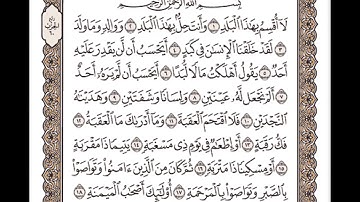 بِسْمِ اللَّهِ الرَّحْمَٰنِ الرَّحِيمِ
لَا أُقْسِمُ بِهَٰذَا الْبَلَدِ ١ وَأَنتَ حِلٌّ بِهَٰذَا الْبَلَدِ ٢ وَوَالِدٍ وَمَا وَلَدَ
٣ لَقَدْ خَلَقْنَا الْإِنسَٰنَ فِي كَبَدٍ ٤ أَيَحْسَبُ أَن لَّن يَقْدِرَ عَلَيْهِ
أَحَدٌ ٥ يَقُولُ أَهْلَكْتُ مَالًا لُّبَدًا ٦ أَيَحْسَبُ أَن لَّمْ يَرَهُۥ أَحَدٌ
٧ أَلَمْ نَجْعَل لَّهُۥ عَيْنَيْنِ ٨ وَلِسَانًا وَشَفَتَيْنِ ٩ وَهَدَيْنَٰهُ
النَّجْدَيْنِ ١٠ فَلَا اقْتَحَمَ الْعَقَبَةَ ١١ وَمَا أَدْرَىٰكَ مَا الْعَقَبَةُ ١٢
فَكُّ رَقَبَةٍ ١٣ أَوْ إِطْعَٰمٌ فِي يَوْمٍ ذِي مَسْغَبَةٍ ١٤ يَتِيمًا ذَا مَقْرَبَةٍ
١٥ أَوْ مِسْكِينًا ذَا مَتْرَبَةٍ ١٦ ثُمَّ كَانَ مِنَ الَّذِينَ ءَامَنُوا وَتَوَاصَوْا
بِالصَّبْرِ وَتَوَاصَوْا بِالْمَرْحَمَةِ ١٧ أُولَٰئِكَ أَصْحَٰبُ الْمَيْمَنَةِ ١٨